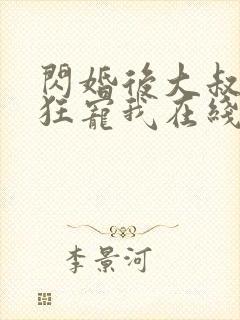 閃婚後大叔
狂寵我在綫
李景河